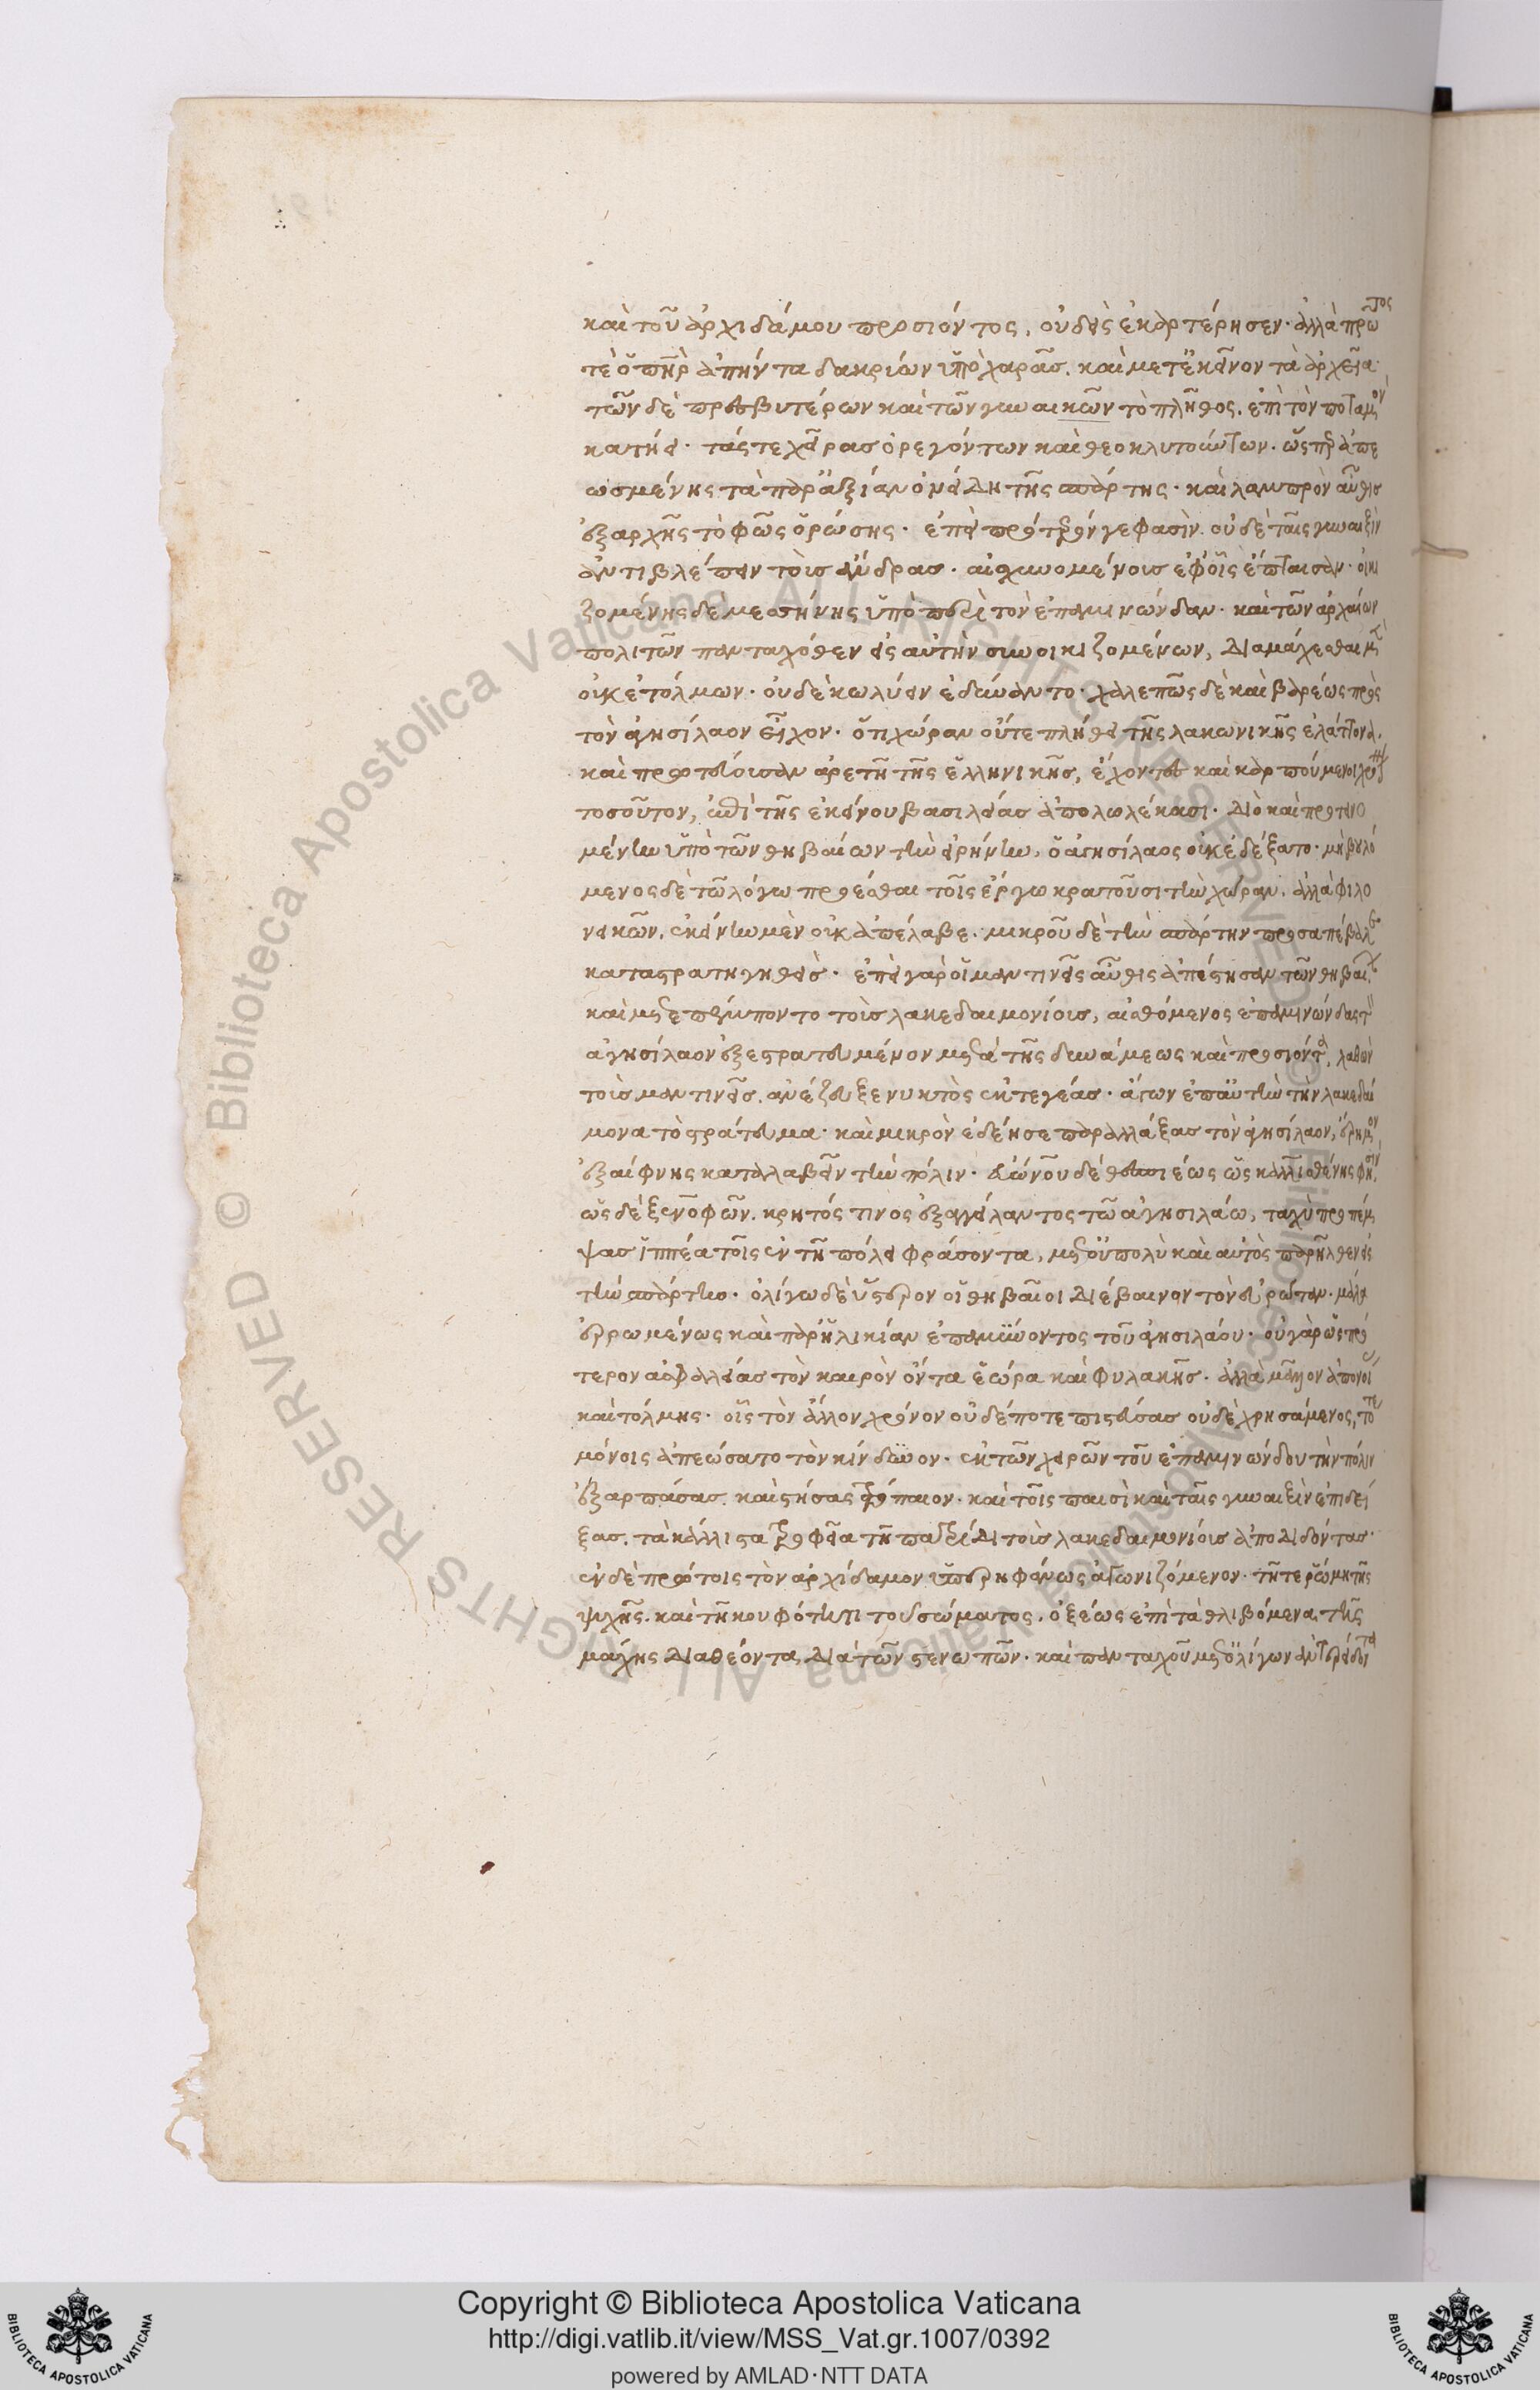 καὶ τοῦ ἀρχιδάμου προσιόντος, οὐδεὶς ἐκαρτέρησεν· ἀλλὰ πρῶτος
τὲ ὁ πατὴρ ἀπήντα δακρύων ὑπὸ χαρᾶς. καὶ μετ' ἐκεῖνον τὰ ἀρχεῖα·
τῶν δὲ πρεσβυτέρων καὶ τῶν γυναικῶν τὸ πλῆθος. ἐπὶ τὸν ποταμὸν
κατήει· τάς τε χεῖρας ὀρεγόντων καὶ θεοκλυτούντων. ὥσπερ ἀπε
ωσμένης τὰ παρ' ἀξίαν ὀνείδη τῆς σπάρτης· καὶ λαμπρὸν αὖθις
ἐξαρχῆς τὸ φῶς ὁρώσης· ἐπεὶ πρότερόν γε φασὶν. οὐδὲ ταῖς γυναιξὶν
ἀντιβλέπειν τοὺς ἄνδρας· αἰσχυνομένους ἐφ' οἷς ἔπταισαν· οἰκι
ζομένης δὲ μεσσήνης ὑπὸ περὶ τὸν ἐπαμινώνδαν· καὶ τῶν ἀρχαίων
πολιτῶν πανταχόθεν εἰς αὐτὴν συνοικιζομένων, διαμάχεσθαι μὲν
οὐκ ἐτόλμων· οὐδὲ κωλύειν ἐδύναντο· χαλεπῶς δὲ καὶ βαρέως πρὸς
τὸν ἀγησίλαον εἶχον· ὅτι χώραν οὔτε πλήθει τῆς λακωνικῆς ἐλάττονα.
καὶ πρωτεύουσαν ἀρετῇ τῆς ἑλληνικῆς, ἔχοντες καὶ καρπούμενοι χρόνον
τοσοῦτον, ἐπὶ τῆς ἐκείνου βασιλείας ἀπολωλέκασι· διὸ καὶ προτεινο
μένην ὑπὸ τῶν θηβαίων τὴν εἰρήνην, ὁ ἀγησίλαος οὐκ ἐδέξατο· μὴ βουλό
μενος δὲ τῶ λόγω προέσθαι τοῖς ἔργω κρατοῦσι τὴν χώραν. ἀλλὰ φιλο
νεικῶν. ἐκείνην μὲν οὐκ ἀπέλαβε. μικροῦ δὲ τὴν σπάρτην προσαπέβαλε
καταστρατηγηθείς· ἐπεὶ γὰρ οἱ μαντινεῖς αὖθις ἀπέστησαν τῶν θηβαίων
καὶ μετεπέμποντο τοὺς λακεδαιμονίους, αἰσθόμενος ἐπαμινώνδας τὸν
ἀγησίλαον ἐξεστρατευμένον μετὰ τῆς δυνάμεως καὶ προσιόντα, λαθὼν
τοὺς μαντινεῖς. ἀνέζευξε νυκτὸς ἐκ τεγέας· ἄγων ἐπ' αὐτὴν τὴν λακεδαί
μονα τὸ στράτευμα· καὶ μικρὸν ἐδέησε παραλλάξας τὸν ἀγησίλαον, ἔρημον
ἐξαίφνης καταλαβεῖν τὴν πόλιν· εὐθύνου δὲ θεσπιέως ὡς καλλισθένης φησίν,
ὡς δὲ ξενοφῶν. κρητός τινος ἐξαγγείλαντος τῶ ἀγησιλάω, ταχὺ προπέμ
ψας ἱππέα τοῖς ἐν τῇ πόλει φράσοντα, μετ' οὐ πολὺ καὶ αὐτὸς παρῆλθεν εἰς
τὴν σπάρτην· ὀλίγω δὲ ὕστερον οἱ θηβαῖοι διέβαινον τὸν εὐρώταν· μάλα
ἐρρωμένως καὶ παρ' ἡλικίαν ἐπαμύνοντος τοῦ ἀγησιλάου· οὐ γὰρ ὡς πρό
τερον ἀσφαλείας τὸν καιρὸν ὄντα ἑώρα καὶ φυλακῆς· ἀλλὰ μᾶλλον ἀπονοί
καὶ τόλμης· οἷς τὸν ἄλλον χρόνον οὐδέποτε πιστεύσας οὐδὲ χρησάμενος, τότε
μόνοις ἀπεώσατο τὸν κίνδυνον· ἐκ τῶν χειρῶν τοῦ ἐπαμινώνδου τὴν πόλιν
ἐξαρπάσας. καὶ στήσας τρόπαιον· καὶ τοῖς παισὶ καὶ ταῖς γυναιξὶν ἐπιδεί
ξας. τὰ κάλλιστα τροφεῖα τῇ πατρίδι τοὺς λακεδαιμονίους ἀποδιδόντας·
ἐν δὲ πρώτοις τὸν ἀρχίδαμον ὑπερηφάνως ἀγωνιζόμενον· τῇ τε ῥώμῃ τῆς
ψυχῆς. καὶ τῇ κουφότητι τοῦ σώματος. ὀξέως ἐπὶ τὰ θλιβόμενα τῆς
μάχης διαθέοντα διὰ τῶν στενωπῶν· καὶ πανταχοῦ μετ' ὀλίγων ἀντερείδοντα
Copyright © Biblioteca Apostolica Vaticana
http://digi.vatlib.it/view/MSS_Vat.gr.1007/0392
powered by AMLAD·NTT DATA